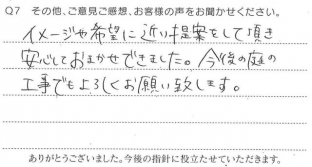 Q7 その他、ご意見ご感想、お客様の声をお聞かせください。
イメージや希望に近い提案をして頂き
安心しておまかせできました。今後の庭の
工事でもよろしくお願い致します。
ありがとうございました。今後の指針に役立たせていただきます。